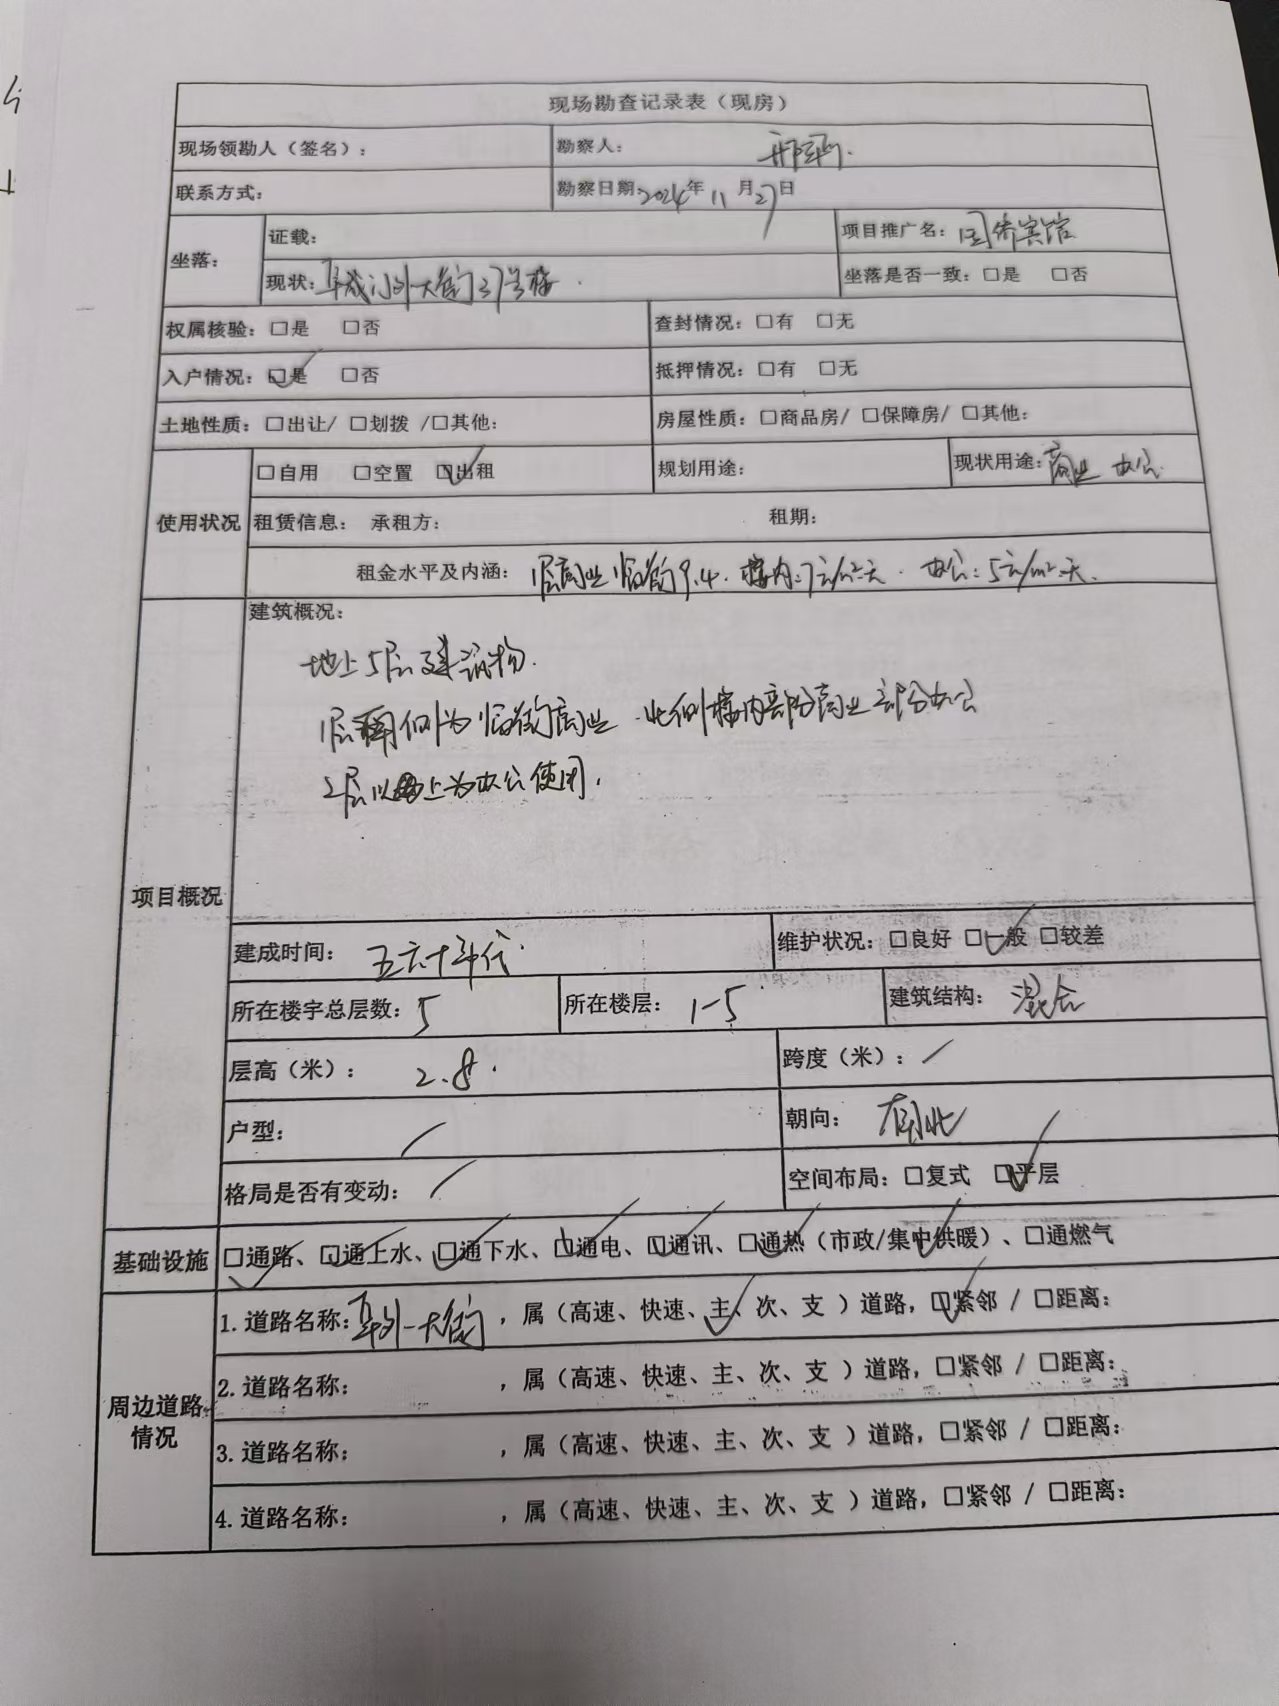 现场勘查记录表（现房）
现场领勘人（签名）： 勘察人：
联系方式： 勘察日期：2024年11月27日
坐落： 证载： 项目推广名：国侨宾馆
现状：阜成门外大街27号楼 坐落是否一致：□是 □否
权属核验：□是 □否 查封情况：□有 □无
入户情况：☑是 □否 抵押情况：□有 □无
土地性质：□出让/ □划拨 /□其他： 房屋性质：□商品房/ □保障房/ □其他：
使用状况 □自用 □空置 ☑出租 规划用途： 现状用途：商业 办公
租赁信息： 承租方： 租期：
租金水平及内涵：1层商业临街9.4. 楼内：7元/m²天. 办公：5元/m².天.
项目概况 建筑概况：
地上5层建筑物.
1层南侧为临街商业.北侧楼内部分商业部分办公
2层以上为办公使用.
建成时间：五六十年代. 维护状况：□良好 ☑一般 □较差
所在楼宇总层数：5 所在楼层：1-5 建筑结构：混合
层高（米）：2.8. 跨度（米）：/
户型：/ 朝向：南北
格局是否有变动：/ 空间布局：□复式 ☑平层
基础设施 ☑通路、☑通上水、☑通下水、☑通电、☑通讯、☑通热（市政/集中供暖）、□通燃气
周边道路情况 1.道路名称：阜外大街，属（高速、快速、主✓、次、支 ）道路，☑紧邻 / □距离：
2.道路名称： ，属（高速、快速、主、次、支 ）道路，□紧邻 / □距离：
3.道路名称： ，属（高速、快速、主、次、支 ）道路，□紧邻 / □距离：
4.道路名称： ，属（高速、快速、主、次、支 ）道路，□紧邻 / □距离：